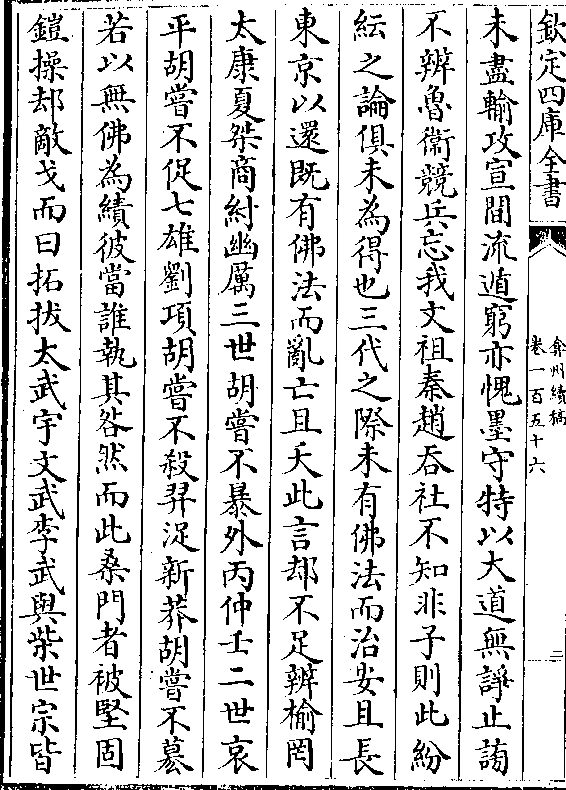 欽定四庫全書
弇州續稿
卷一百五十六
二
未盡輸攻宣間流遁窮亦愧墨守特以大道無諍止謁
不辨魯衞競兵忘我文祖秦趙吞社不知非子則此紛
紜之論俱未為得也三代之際未有佛法而治安且長
東京以還既有佛法而亂亡且夭此言却不足辨榆罔
太康夏桀商紂幽厲三世胡嘗不暴外丙仲壬二世哀
平胡嘗不促七雄劉項胡嘗不殺羿浞新莽胡嘗不簒
若以無佛為績彼當誰執其咎然而此桑門者被堅固
鎧操却敵戈而曰拓拔太武宇文武李武與柴世宗皆